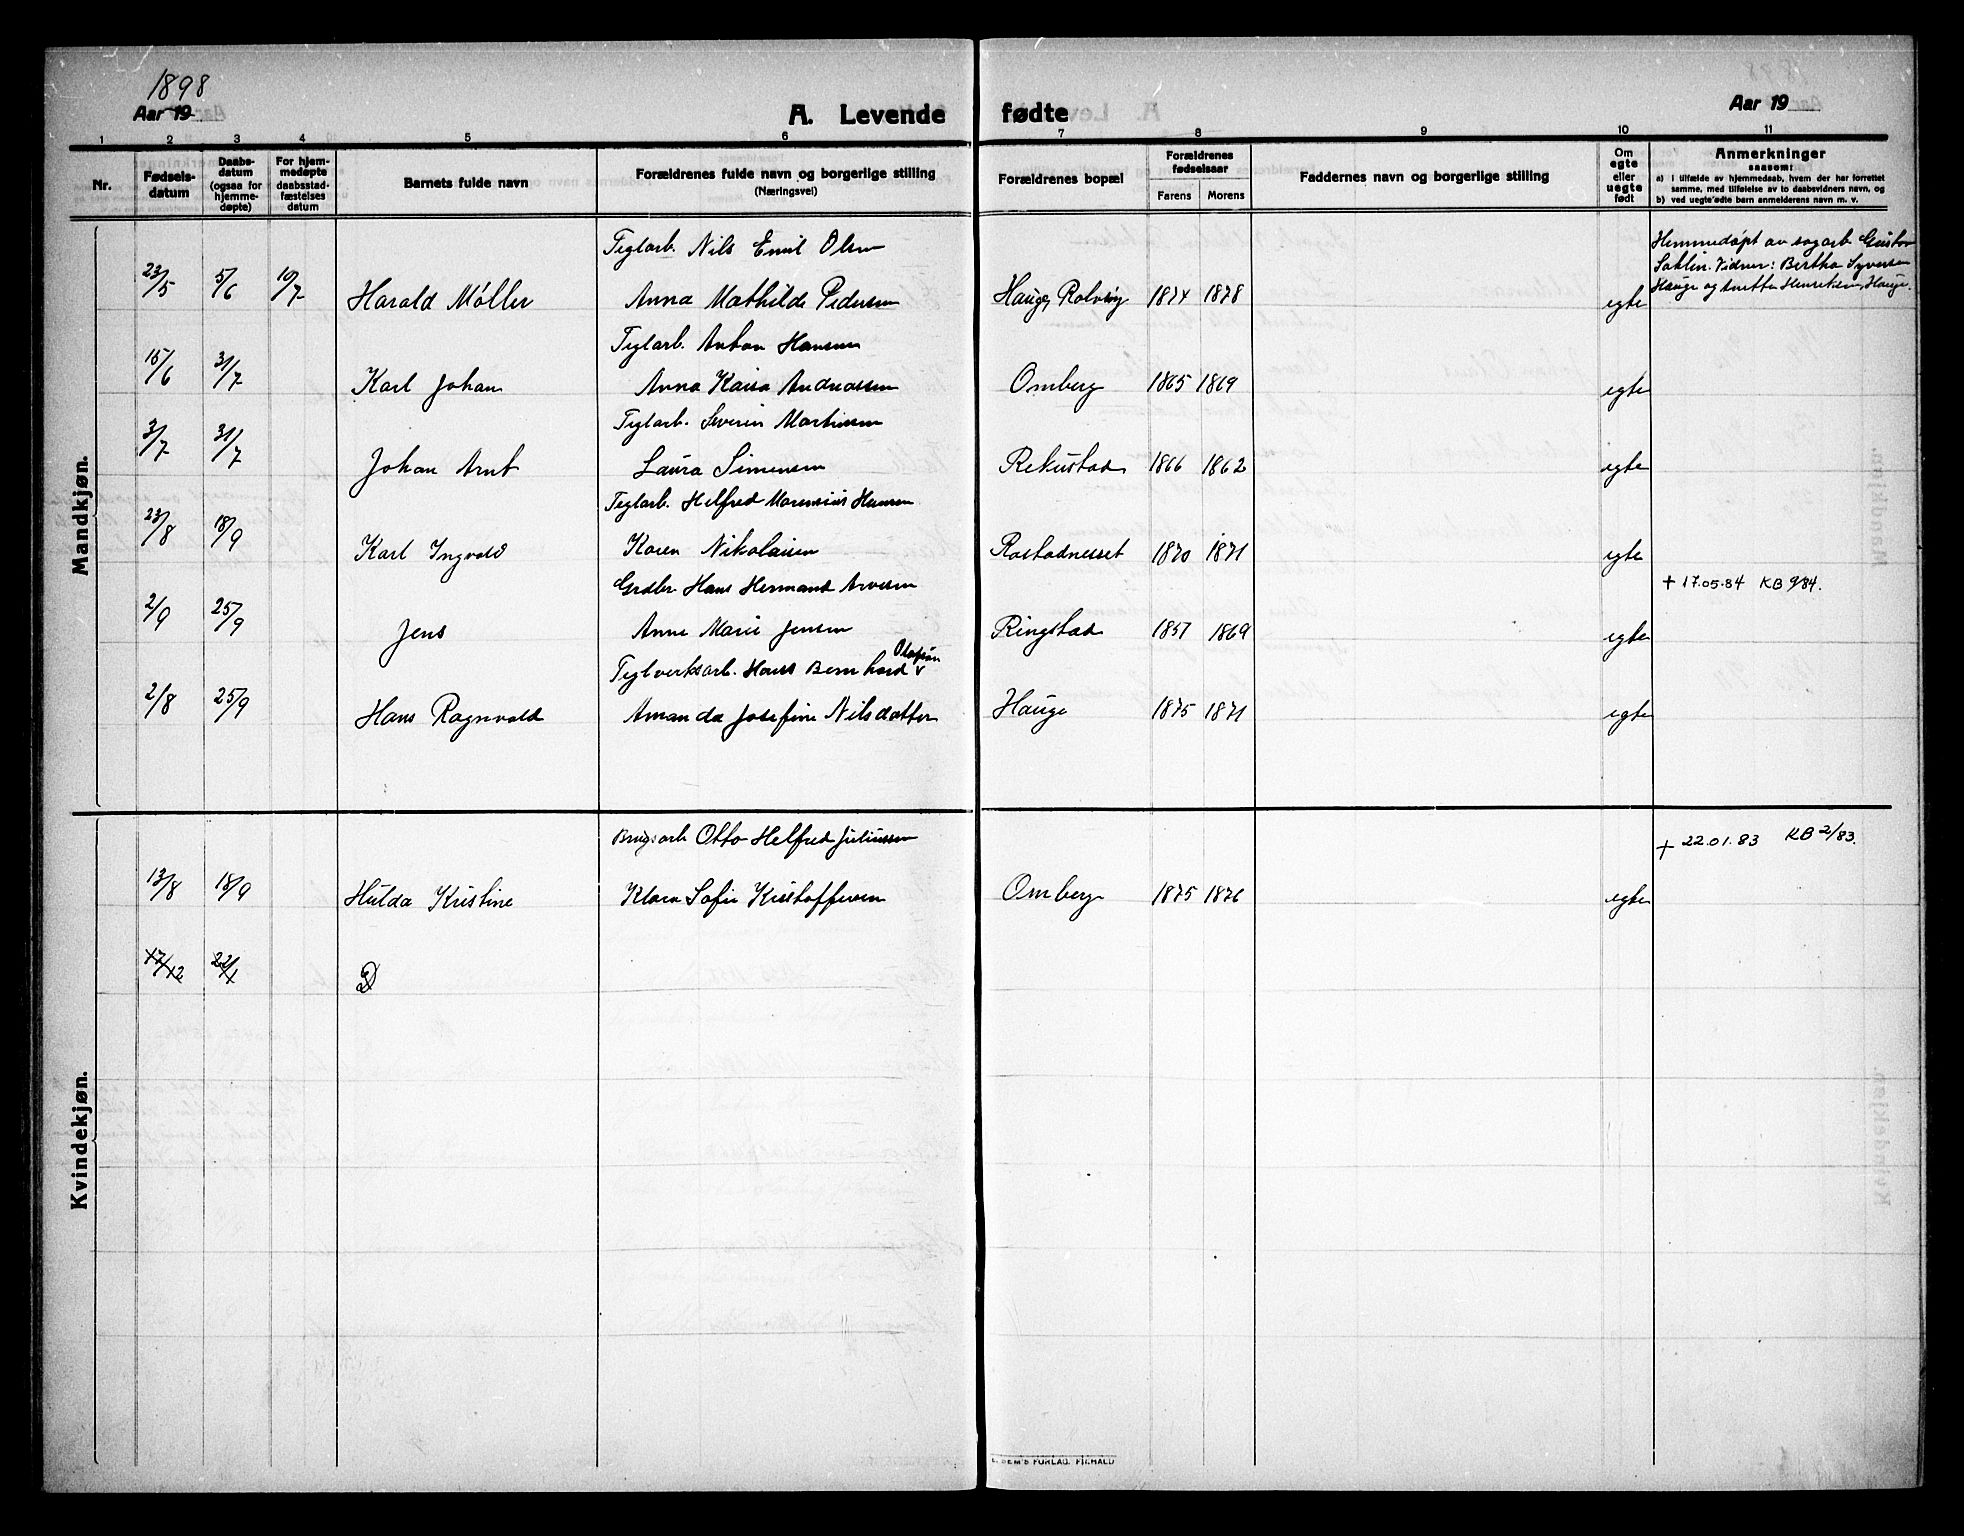 1898
Aar 19
A. Levende fødte
Aar 19
1 2 3 4 5 6 7 8 9 10 11
Nr.
Fødsels-
datum
Daabs-
datum
(ogsaa for
hjemme-
døpte)
For hjem-
medøpte
daabsstad-
fæstelses
datum
Barnets fulde navn
Forældrenes fulde navn og borgerlige stilling
(Næringsvei)
Forældrenes bopæl
Forældrenes
fødselsaar
Farens Morens
Faddernes navn og borgerlige stilling
Om
egte
eller
uegte
født
Anmerkninger
saasom:
a) i tilfælde av hjemmedaab, hvem der har forrettet
samme, med tilføielse av to daabsvidners navn, og
b) ved uegte fødte barn anmelderens navn m. v.
Mandkjøn.
Teglarb. Nils Emil Olsen
23/5 5/6 10/7 Harald Møller Anna Mathilde Pedersen Hauge, Rolvsøy 1874 1878 egte
Hemmedøpt av sagarb. Gustav
Vidner: Bertha Syversen
Hauge og Henriksen, Hauge.
Teglarb. Anton Hansen
15/6 31/7 Karl Johan Anna Kaisa Andreassen Omberg 1865 1869 egte
Teglarb. Severin Martinsen
3/7 31/7 Johan Arnt Laura Simensen Rekustad 1866 1862 egte
Teglarb. Helfred Hansen
23/8 18/9 Karl Ingvald Karen Nikolaisen Rostadnesset 1870 1871 egte
Grdbr. Hans Hermand Arvesen
+ 17.05.84 KB 9/84.
2/9 25/9 Jens Anne Marie Jensen Ringstad 1857 1869 egte
Teglverksarb. Hans Bernhard Olafsøn
2/8 25/9 Hans Ragnvald Amanda Josefine Nilsdatter Hauge 1875 1871 egte
Kvindekjøn.
Brugsarb Otto Helfred Juliussen
+ 22.01.83 KB 2/83.
13/8 18/9 Hulda Kristine Klara Sofie Kristoffersen Omberg 1875 1876 egte
17/12 22/1 D
SEM'S FORLAG. F.HALD